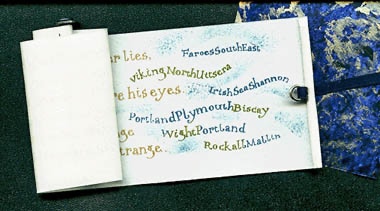 r lies,
FaroesSouthEast
vikingNorthUtsera
re his eyes.
IrishSeaShannon
PortlandPlymouthBiscay
ge
WightPortland
trange.
RockallMallin